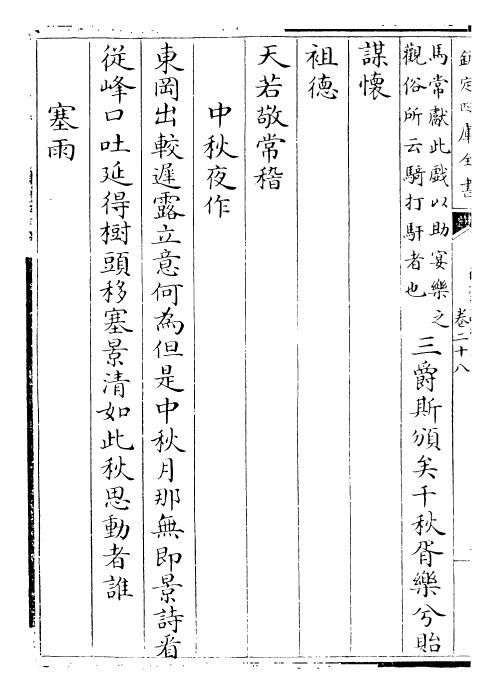 欽定四庫全書
卷二十八
馬常獻此戲以助宴樂之
觀俗所云騎打馯者也
三爵斯頒矣千秋胥樂兮貽
謀懷
祖德
天若敬常稽
中秋夜作
東岡出較遲露立意何為但是中秋月那無即景詩看
從峰口吐延得樹頭移塞景清如此秋思動者誰
塞雨